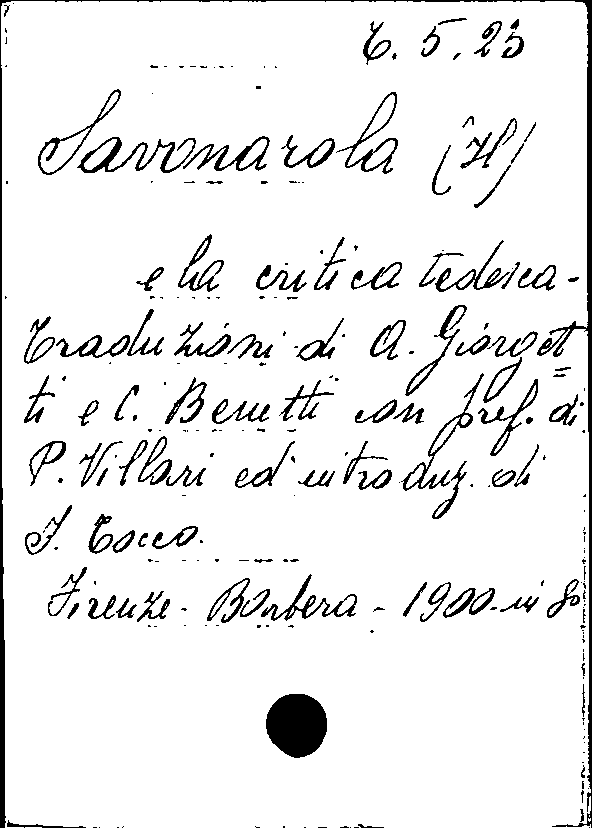 T. 5. 23
Savonarola (Il)
e la critica tedesca-
Traduzioni di A. Giorget
ti e C. Benetti con pref. di
P. Villari ed introduz. di
F. Tocco.
Firenze - Barbera - 1900 - in 8º